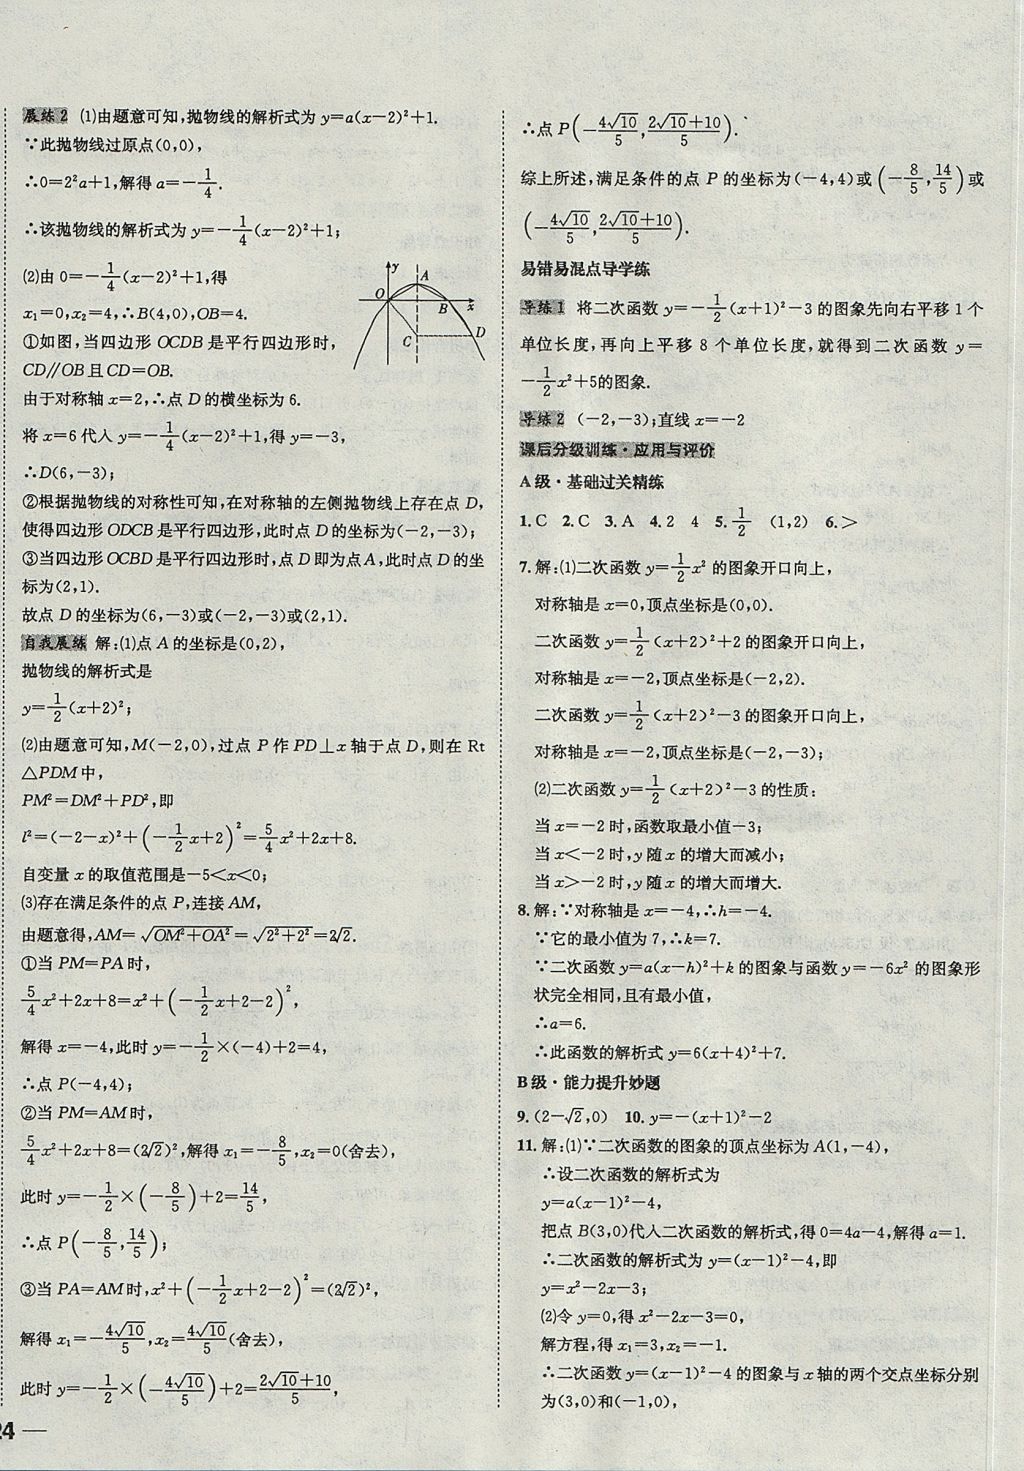 展练2 (1)由题意可知,抛物线的解析式为 y=a(x-2)²+1.
∵此抛物线过原点(0,0),
∴0=2²a+1,解得 a=-1/4.
∴该抛物线的解析式为 y=-1/4(x-2)²+1;
(2)由 0=-1/4(x-2)²+1,得
x₁=0,x₂=4,∴B(4,0),OB=4.
①如图,当四边形 OCDB 是平行四边形时,
CD∥OB 且 CD=OB.
由于对称轴 x=2,∴点 D 的横坐标为 6.
将 x=6 代入 y=-1/4(x-2)²+1,得 y=-3,
∴D(6,-3);
②根据抛物线的对称性可知,在对称轴的左侧抛物线上存在点 D,
使得四边形 ODCB 是平行四边形,此时点 D 的坐标为(-2,-3);
③当四边形 OCBD 是平行四边形时,点 D 即为点 A,此时点 D 的坐
标为(2,1).
故点 D 的坐标为(6,-3)或(-2,-3)或(2,1).
y
A
O
B
x
C
D
自我展练 解:(1)点 A 的坐标是(0,2),
抛物线的解析式是
y=1/2(x+2)²;
(2)由题意可知,M(-2,0),过点 P 作 PD⊥x 轴于点 D,则在 Rt
△PDM 中,
PM²=DM²+PD²,即
l²=(-2-x)²+(-1/2x+2)²=5/4x²+2x+8.
自变量 x 的取值范围是-5<x<0;
(3)存在满足条件的点 P,连接 AM,
由题意得,AM=√(OM²+OA²)=√(2²+2²)=2√2.
①当 PM=PA 时,
5/4x²+2x+8=x²+(-1/2x+2-2)²,
解得 x=-4,此时 y=-1/2×(-4)+2=4,
∴点 P(-4,4);
②当 PM=AM 时,
5/4x²+2x+8=(2√2)²,解得 x₁=-8/5,x₂=0(舍去),
此时 y=-1/2×(-8/5)+2=14/5,
∴点 P(-8/5,14/5);
③当 PA=AM 时,x²+(-1/2x+2-2)²=(2√2)²,
解得 x₁=-4√10/5,x₂=4√10/5(舍去),
此时 y=-1/2×(-4√10/5)+2=(2√10+10)/5,
24
∴点 P(-4√10/5,(2√10+10)/5).
综上所述,满足条件的点 P 的坐标为(-4,4)或(-8/5,14/5)或
(-4√10/5,(2√10+10)/5).
易错易混点导学练
导练1 将二次函数 y=-1/2(x+1)²-3 的图象先向右平移 1 个
单位长度,再向上平移 8 个单位长度,就得到二次函数 y=
-1/2x²+5的图象.
导练2 (-2,-3);直线 x=-2
课后分级训练·应用与评价
A级·基础过关精练
1.C 2.C 3.A 4.2 4 5.1/2 (1,2) 6.>
7.解:(1)二次函数 y=1/2x² 的图象开口向上,
对称轴是 x=0,顶点坐标是(0,0).
二次函数 y=1/2(x+2)²+2 的图象开口向上,
对称轴是 x=-2,顶点坐标是(-2,2).
二次函数 y=1/2(x+2)²-3 的图象开口向上,
对称轴是 x=-2,顶点坐标是(-2,-3);
(2)二次函数 y=1/2(x+2)²-3 的性质:
当 x=-2 时,函数取最小值-3;
当 x<-2 时,y 随 x 的增大而减小;
当 x>-2 时,y 随 x 的增大而增大.
8.解:∵对称轴是 x=-4,∴h=-4.
∵它的最小值为 7,∴k=7.
∵二次函数 y=a(x-h)²+k 的图象与函数 y=-6x² 的图象形
状完全相同,且有最小值,
∴a=6.
∴此函数的解析式 y=6(x+4)²+7.
B级·能力提升妙题
9.(2-√2,0) 10.y=-(x+1)²-2
11.解:(1)∵二次函数的图象的顶点坐标为 A(1,-4),
∴设二次函数的解析式为
y=a(x-1)²-4,
把点 B(3,0)代入二次函数的解析式,得 0=4a-4,解得 a=1.
∴二次函数的解析式为 y=(x-1)²-4,即
y=x²-2x-3;
(2)令 y=0,得 x²-2x-3=0,
解方程,得 x₁=3,x₂=-1.
∴二次函数 y=(x-1)²-4 的图象与 x 轴的两个交点坐标分别
为(3,0)和(-1,0),